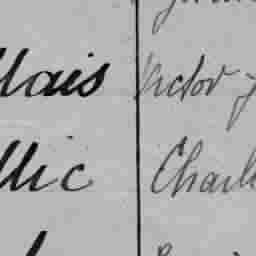 llais Victor J
llic Charl